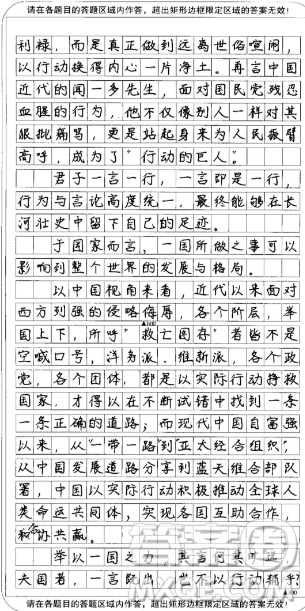 请在各题目的答题区域内作答，超出矩形边框限定区域的答案无效！
利禄，而是真正做到远离世俗喧闹，
以行动换得内心一片净土。再言中国
近代的闻一多先生，面对国民党残忍
血腥的行为，他不仅像别人一样对其
狠批痛骂，更是站起身来为人民振臂
高呼，成为了“行动的巨人”。
君子一言一行，一言即是一行，
行为与言论高度统一，最终能够在长
河壮史中留下自己的足迹。
于国家而言，一国所做之事可以
影响到整个世界的发展与格局。
以中国视角来看，近代以来面对
西方列强的侵略侮辱，各个阶层，举
国上下，所呼“救亡图存”者皆不是
空喊口号，洋务派、维新派，各个政
党，各个团体，都是以实际行动拯救
国家，才得以在不断试错中找到一条
一条正确的道路；而现代中国自富强
以来，从“一带一路”到“亚太经合组织”，
从中国发展道路分享到蓝天维合部队
署，中国以实际行动积极推动全球人
类命运共同体，实现各国互助合作，
和合协共赢。
举以一国之力，其言何其中正，
夫国者，一言既出，也不以行动
请在各题目的答题区域内作答，超出矩形边框限定区域的答案无效！